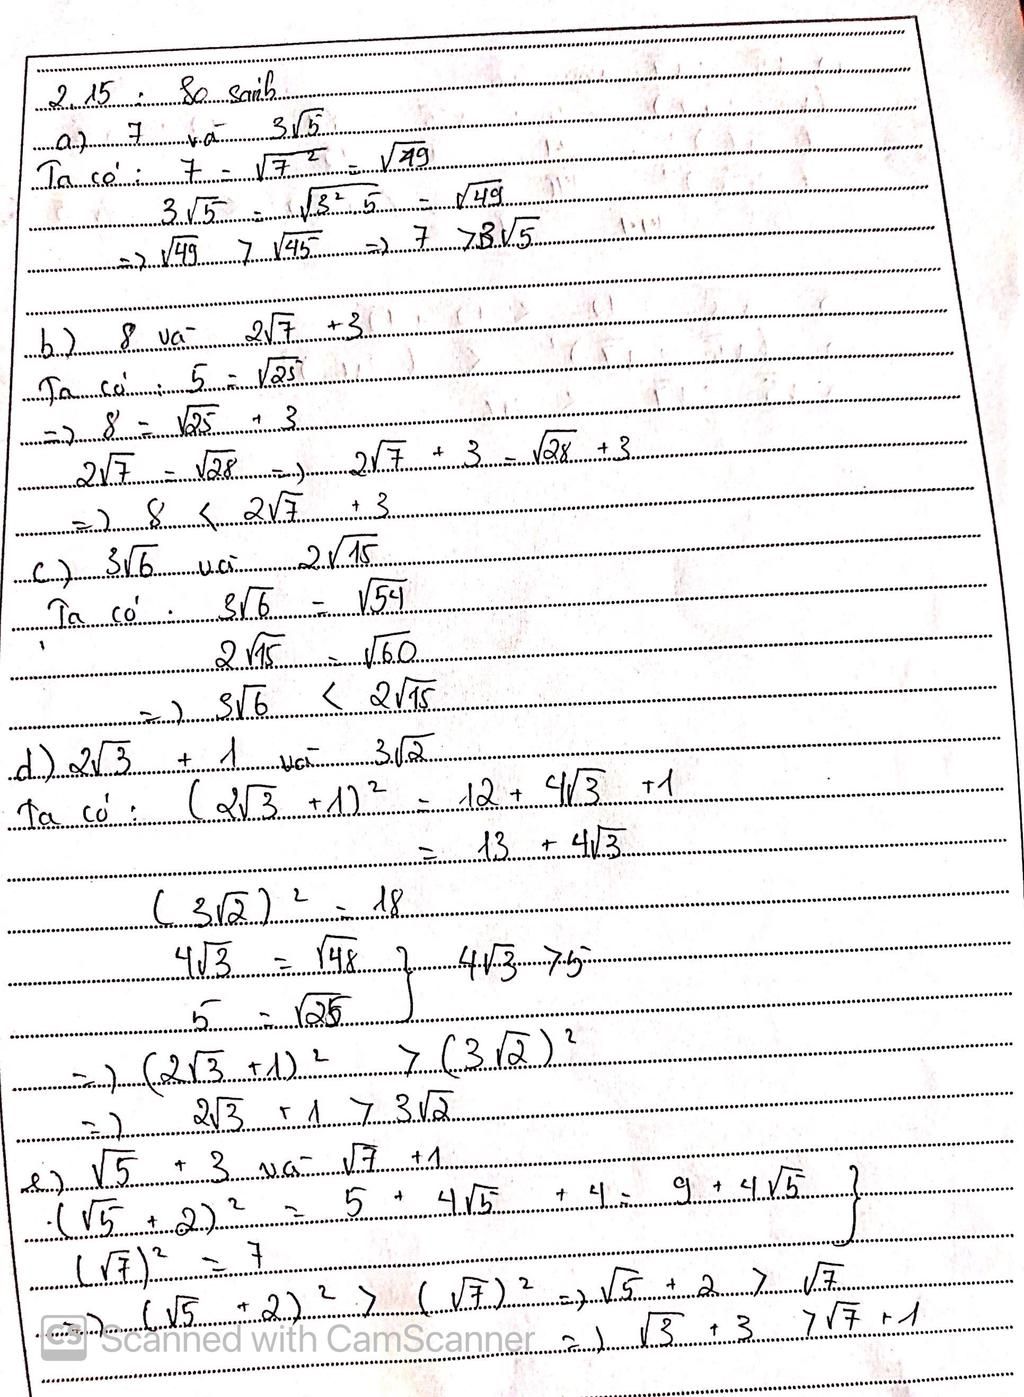 2.15 : So sánh
a) 7 và 3√5
Ta có : 7 = √7² = √49
3√5 = √3².5 = √49
=> √49 > √45 => 7 > 3√5
b) 8 và 2√7 + 3
Ta có : 5 = √25
=> 8 = √25 + 3
2√7 = √28 => 2√7 + 3 = √28 + 3
=> 8 < 2√7 + 3
c) 3√6 và 2√15
Ta có : 3√6 = √54
2√15 = √60
=> 3√6 < 2√15
d) 2√3 + 1 và 3√2
Ta có : (2√3 + 1)² = 12 + 4√3 + 1
= 13 + 4√3
(3√2)² = 18
4√3 = √48 } 4√3 > 5
5 = √25
=> (2√3 + 1)² > (3√2)²
=> 2√3 + 1 > 3√2
e) √5 + 3 và √7 + 1
(√5 + 2)² = 5 + 4√5 + 4 = 9 + 4√5 }
(√7)² = 7
=> (√5 + 2)² > (√7)² => √5 + 2 > √7
=> √3 + 3 > √7 + 1
CS Scanned with CamScanner